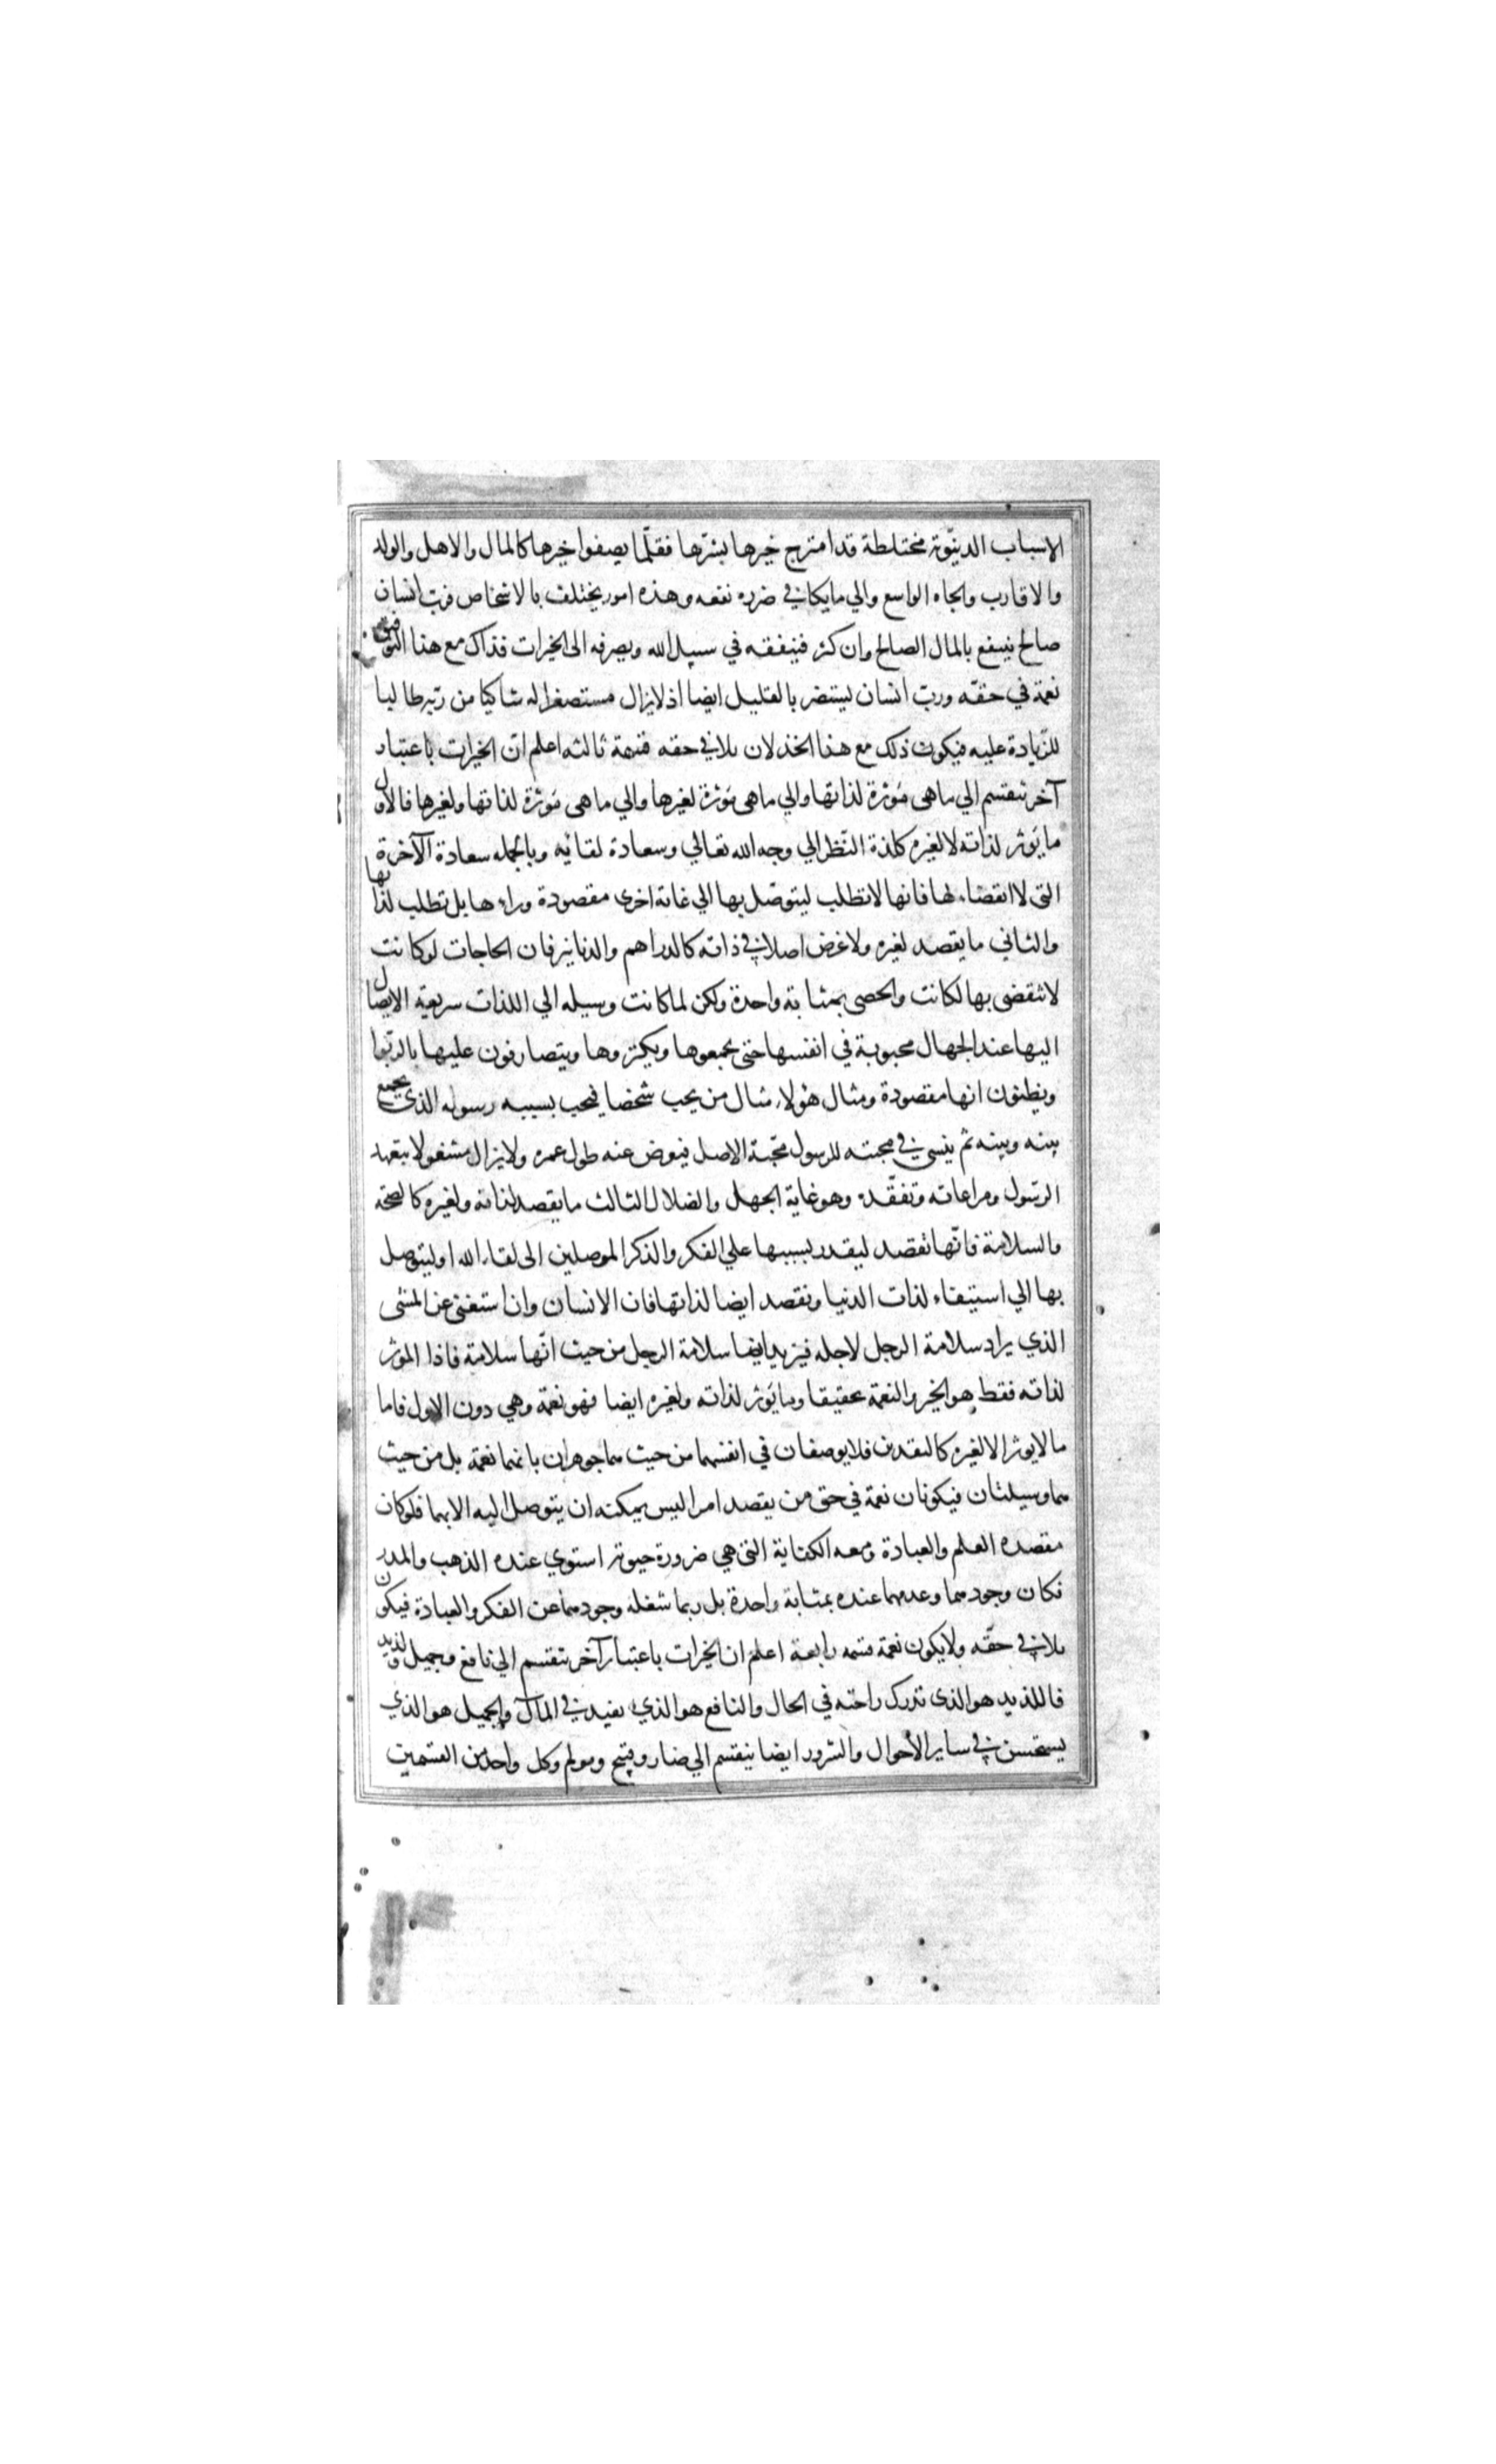 الاسباب الدنيّوية مختلطة قد امتزج خيرها بشرّها فقلّما يصفوا خيرها كالمال والاهل والولد
والاقارب والجاه الواسع والي ما يكافي ضرره نفعه وهذه امور يختلف بالاشخاص فربّ انسان
صالح ينتفع بالمال الصالح وان كثر فينفقه في سبيل الله ويصرفه الى الخيرات فذاك مع هذا التوفيق
نعمة في حقّه وربّ انسان ليستضر بالقليل ايضا اذ لايزال مستصغرا له شاكيا من ربّه طالبا
للزّيادة عليه فيكون ذلك مع هذا الخذلان بلا في حقه قسمة ثالثه اعلم انّ الخيرات باعتبار
آخر تنقسم الي ما هى مؤثرة لذاتها والي ما هى مؤثرة لغيرها والي ما هى مؤثرة لذاتها ولغيرها فالاول
ما يؤثر لذاته لا لغيره كلذة النّظر الي وجه الله تعالي وسعادة لقائه وبالجمله سعادة الآخرة
التى لا انقضاء لها فانها لا تطلب ليتوصّل بها الي غاية اخرى مقصودة وراءها بل تطلب لذاتها
والثاني ما يقصد لغيره ولا غرض اصلا في ذاته كالدراهم والدنانير فان الحاجات لو كانت
لا تنقضى بها لكانت والحصى بمثابة واحدة ولكن لما كانت وسيله الي اللذات سريعة الايصال
اليها عند الجهال محبوبة في انفسها حتى يجمعوها ويكنزوها ويتصارفون عليها بالربّوا
ويظنون انها مقصودة ومثال هؤلاء مثال من يحب شخصا فيحب بسببه رسوله الذى يجمع
بينه وبينه ثم ينسى في محبته للرسول محبّة الاصل فيعرض عنه طول عمره ولا يزال مشغولا بتعهد
الرسول ومراعاته وتفقّده وهو غاية الجهل والضلال الثالث ما يقصد لذاته ولغيره كالصحّة
والسلامة فانّها تقصد ليقدر بسببها علي الفكر والذكر الموصلين الى لقاء الله او ليتوصل
بها الي استيفاء لذات الدنيا وتقصد ايضا لذاتها فان الانسان وان استغنى عن المشى
الذي يراد سلامة الرجل لاجله فيريد ايضا سلامة الرجل من حيث انّها سلامة فاذا المؤثر
لذاته فقط هو الخير والنعمة تحقيقا وما يؤثر لذاته ولغيره ايضا فهو نعمة وهي دون الاول فاما
ما لا يوثر الا لغيره كالنقدين فلا يوصفان في انفسهما من حيث هما جوهران بانهما نعمة بل من حيث
هما وسيلتان فيكونان نعمة في حق من يقصد امرا ليس يمكنه ان يتوصل اليه الا بهما فلو كان
مقصده العلم والعبادة ومعه الكفاية التى هي ضرورة حيوته استوي عنده الذهب والمدر
فكان وجودهما وعدمهما عنده بمثابة واحدة بل ربما شغله وجودهما عن الفكر والعبادة فيكون
بلا في حقّه ولا يكون نعمة قسمه رابعة اعلم ان الخيرات باعتبار آخر تنقسم الي نافع وجميل ولذيد
فاللذيد هو الذى تدرك راحته في الحال والنافع هو الذي يفيد في المآل والجميل هو الذي
يستحسن في ساير الأحوال والشرور ايضا ينقسم الي ضار وقبيح ومولم وكل واحد من القسمين